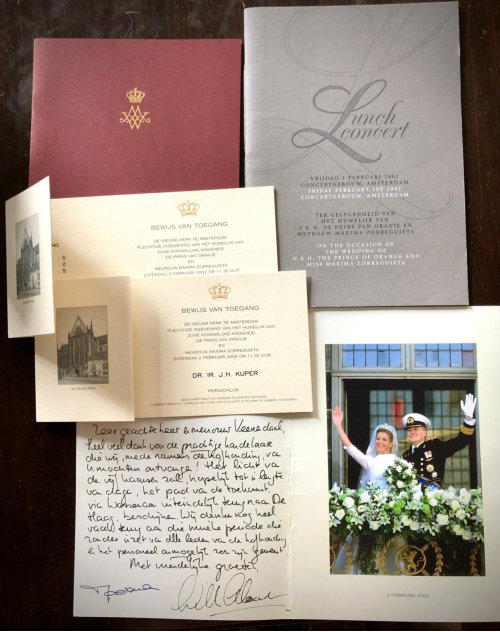 Lunch
concert
VRIJDAG 1 FEBRUARI 2002
CONCERTGEBOUW, AMSTERDAM
FRIDAY FEBRUARY 1ST 2002
CONCERTGEBOUW, AMSTERDAM
TER GELEGENHEID VAN
HET HUWELIJK VAN
Z.K.H. DE PRINS VAN ORANJE EN
MEVROUW MÁXIMA ZORREGUIETA
ON THE OCCASION OF
THE WEDDING OF
H.R.H. THE PRINCE OF ORANGE AND
MISS MÁXIMA ZORREGUIETA
BEWIJS VAN TOEGANG
DE NIEUWE KERK TE AMSTERDAM
PLECHTIGE INZEGENING VAN HET HUWELIJK VAN
ZIJNE KONINKLIJKE HOOGHEID
DE PRINS VAN ORANJE
EN
MEVROUW MÁXIMA ZORREGUIETA
ZATERDAG 2 FEBRUARI 2002 OM 11.30 UUR
BEWIJS VAN TOEGANG
DE NIEUWE KERK TE AMSTERDAM
PLECHTIGE INZEGENING VAN HET HUWELIJK VAN
ZIJNE KONINKLIJKE HOOGHEID
DE PRINS VAN ORANJE
EN
MEVROUW MÁXIMA ZORREGUIETA
ZATERDAG 2 FEBRUARI 2002 OM 11.30 UUR
DR. IR. J.H. KUPER
PERSOONLIJK
DE NIEUWE KERK
Zeer geachte heer & mevrouw
heel veel dank van de prachtige kandelaar
die wij, mede namens de hofhouding, van
U mochten ontvangen! Het licht van
de vijf kaarsen zal hopelijk tot in lengte
van dagen, het pad van de toekomst
via Wassenaar uiteindelijk terug naar Den
Haag, beschijnen. Wij denken nog heel
vaak terug aan die unieke periode die
zonder inzet van alle leden van de hofhouding
& het personeel onmogelijk zou zijn geweest
Met vriendelijke groeten
2 FEBRUARI 2002